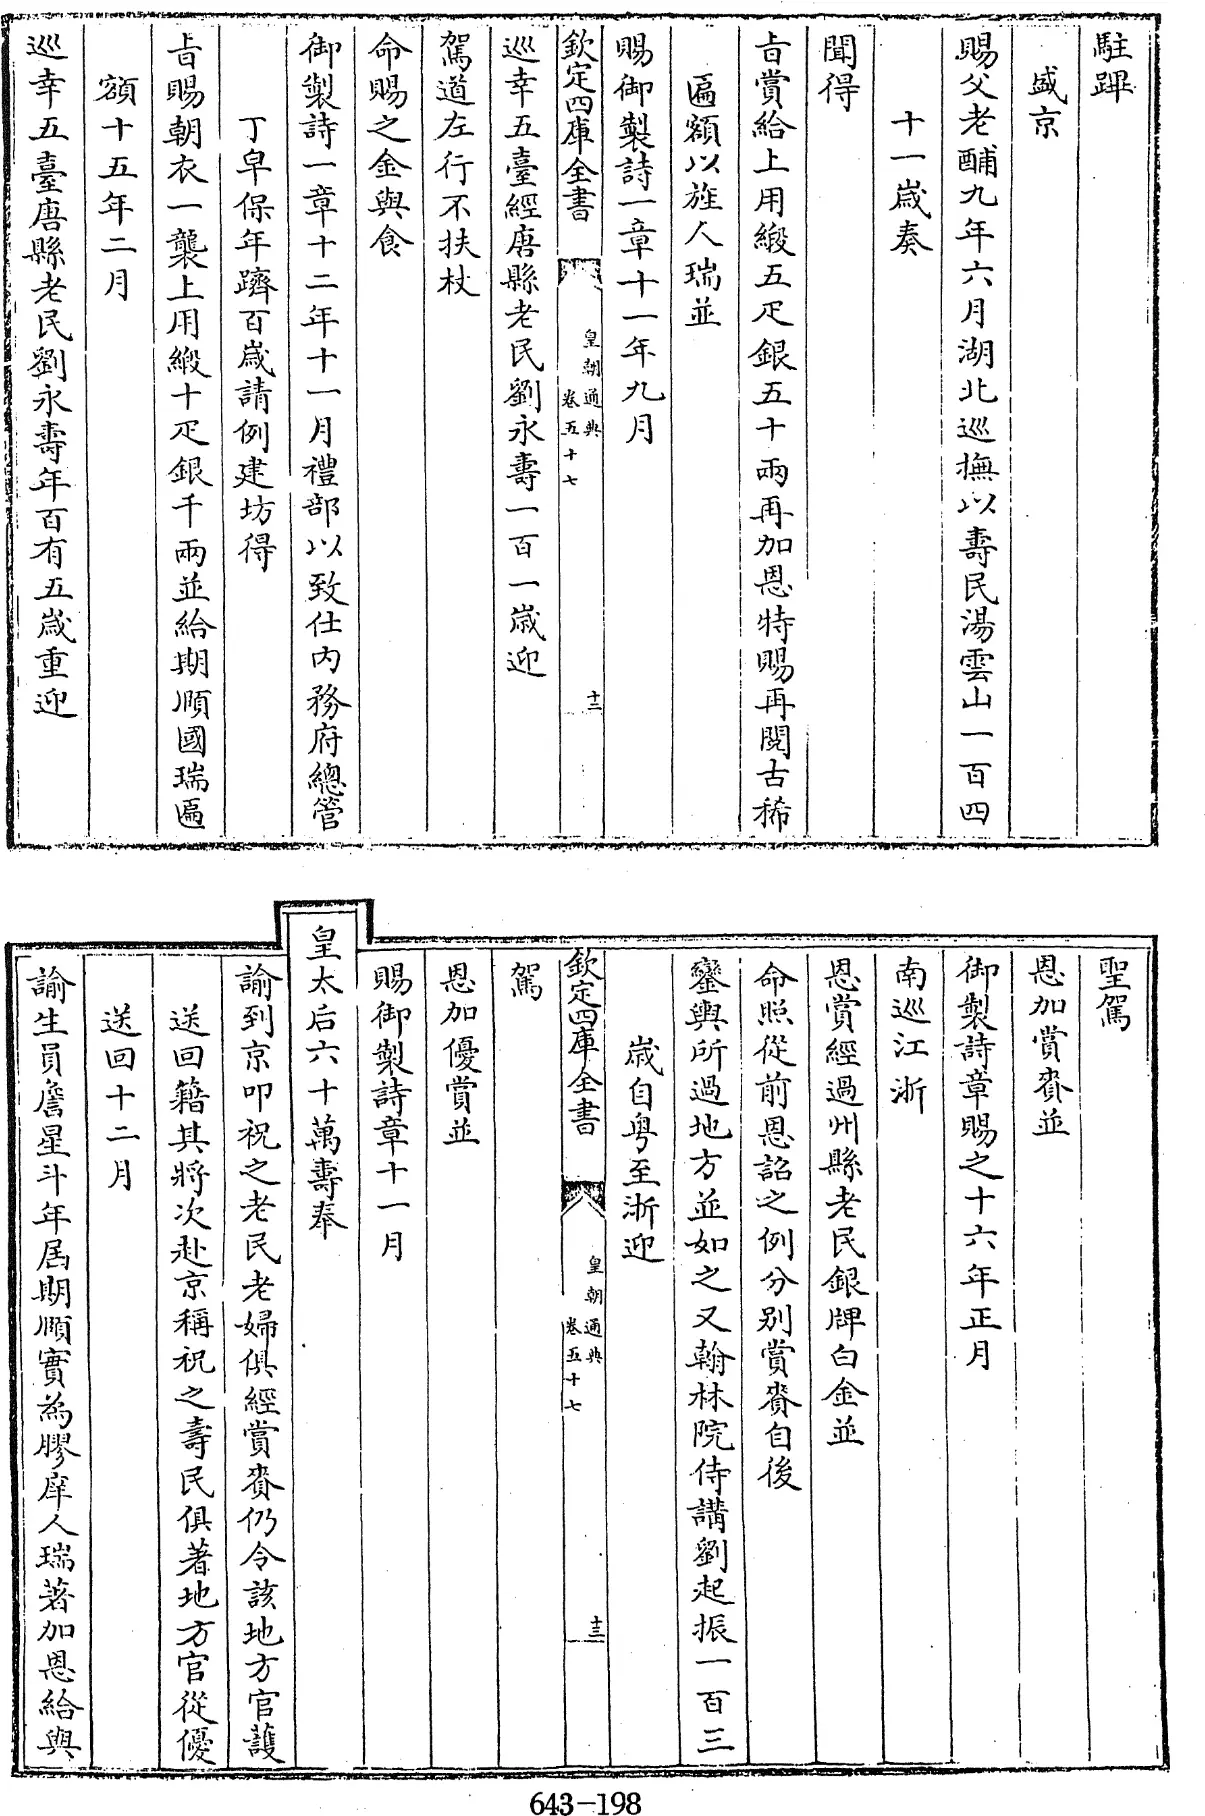 駐蹕
盛京
賜父老酺九年六月湖北巡撫以壽民湯雲山一百四
十一歲奏
聞得
旨賞給上用緞五疋銀五十兩再加恩特賜再閱古稀
匾額以旌人瑞並
賜御製詩一章十一年九月
欽定四庫全書
皇朝通典
卷五十七
十二
巡幸五臺經唐縣老民劉永壽一百一歲迎
駕道左行不扶杖
命賜之金與食
御製詩一章十二年十一月禮部以致仕内務府總管
丁皁保年躋百歲請例建坊得
旨賜朝衣一襲上用緞十疋銀千兩並給期頤國瑞匾
額十五年二月
巡幸五臺唐縣老民劉永壽年百有五歲重迎
聖駕
恩加賞賚並
御製詩章賜之十六年正月
南巡江浙
恩賞經過州縣老民銀牌白金並
命照從前恩詔之例分别賞賚自後
鑾輿所過地方並如之又翰林院侍講劉起振一百三
歲自粤至浙迎
欽定四庫全書
皇朝通典
卷五十七
十三
駕
恩加優賞並
賜御製詩章十一月
皇太后六十萬壽奉
諭到京叩祝之老民老婦俱經賞賚仍令該地方官護
送回籍其將次赴京稱祝之壽民俱著地方官從優
送回十二月
諭生員詹星斗年居期頤實為膠庠人瑞著加恩給與
643-198